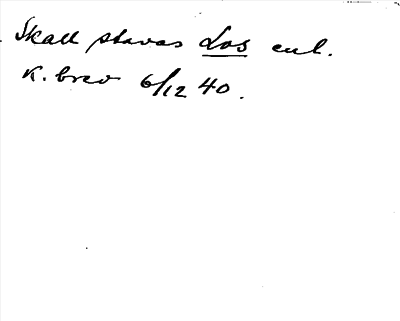 Skall stavas Los enl.
K. brev 6/12 40.